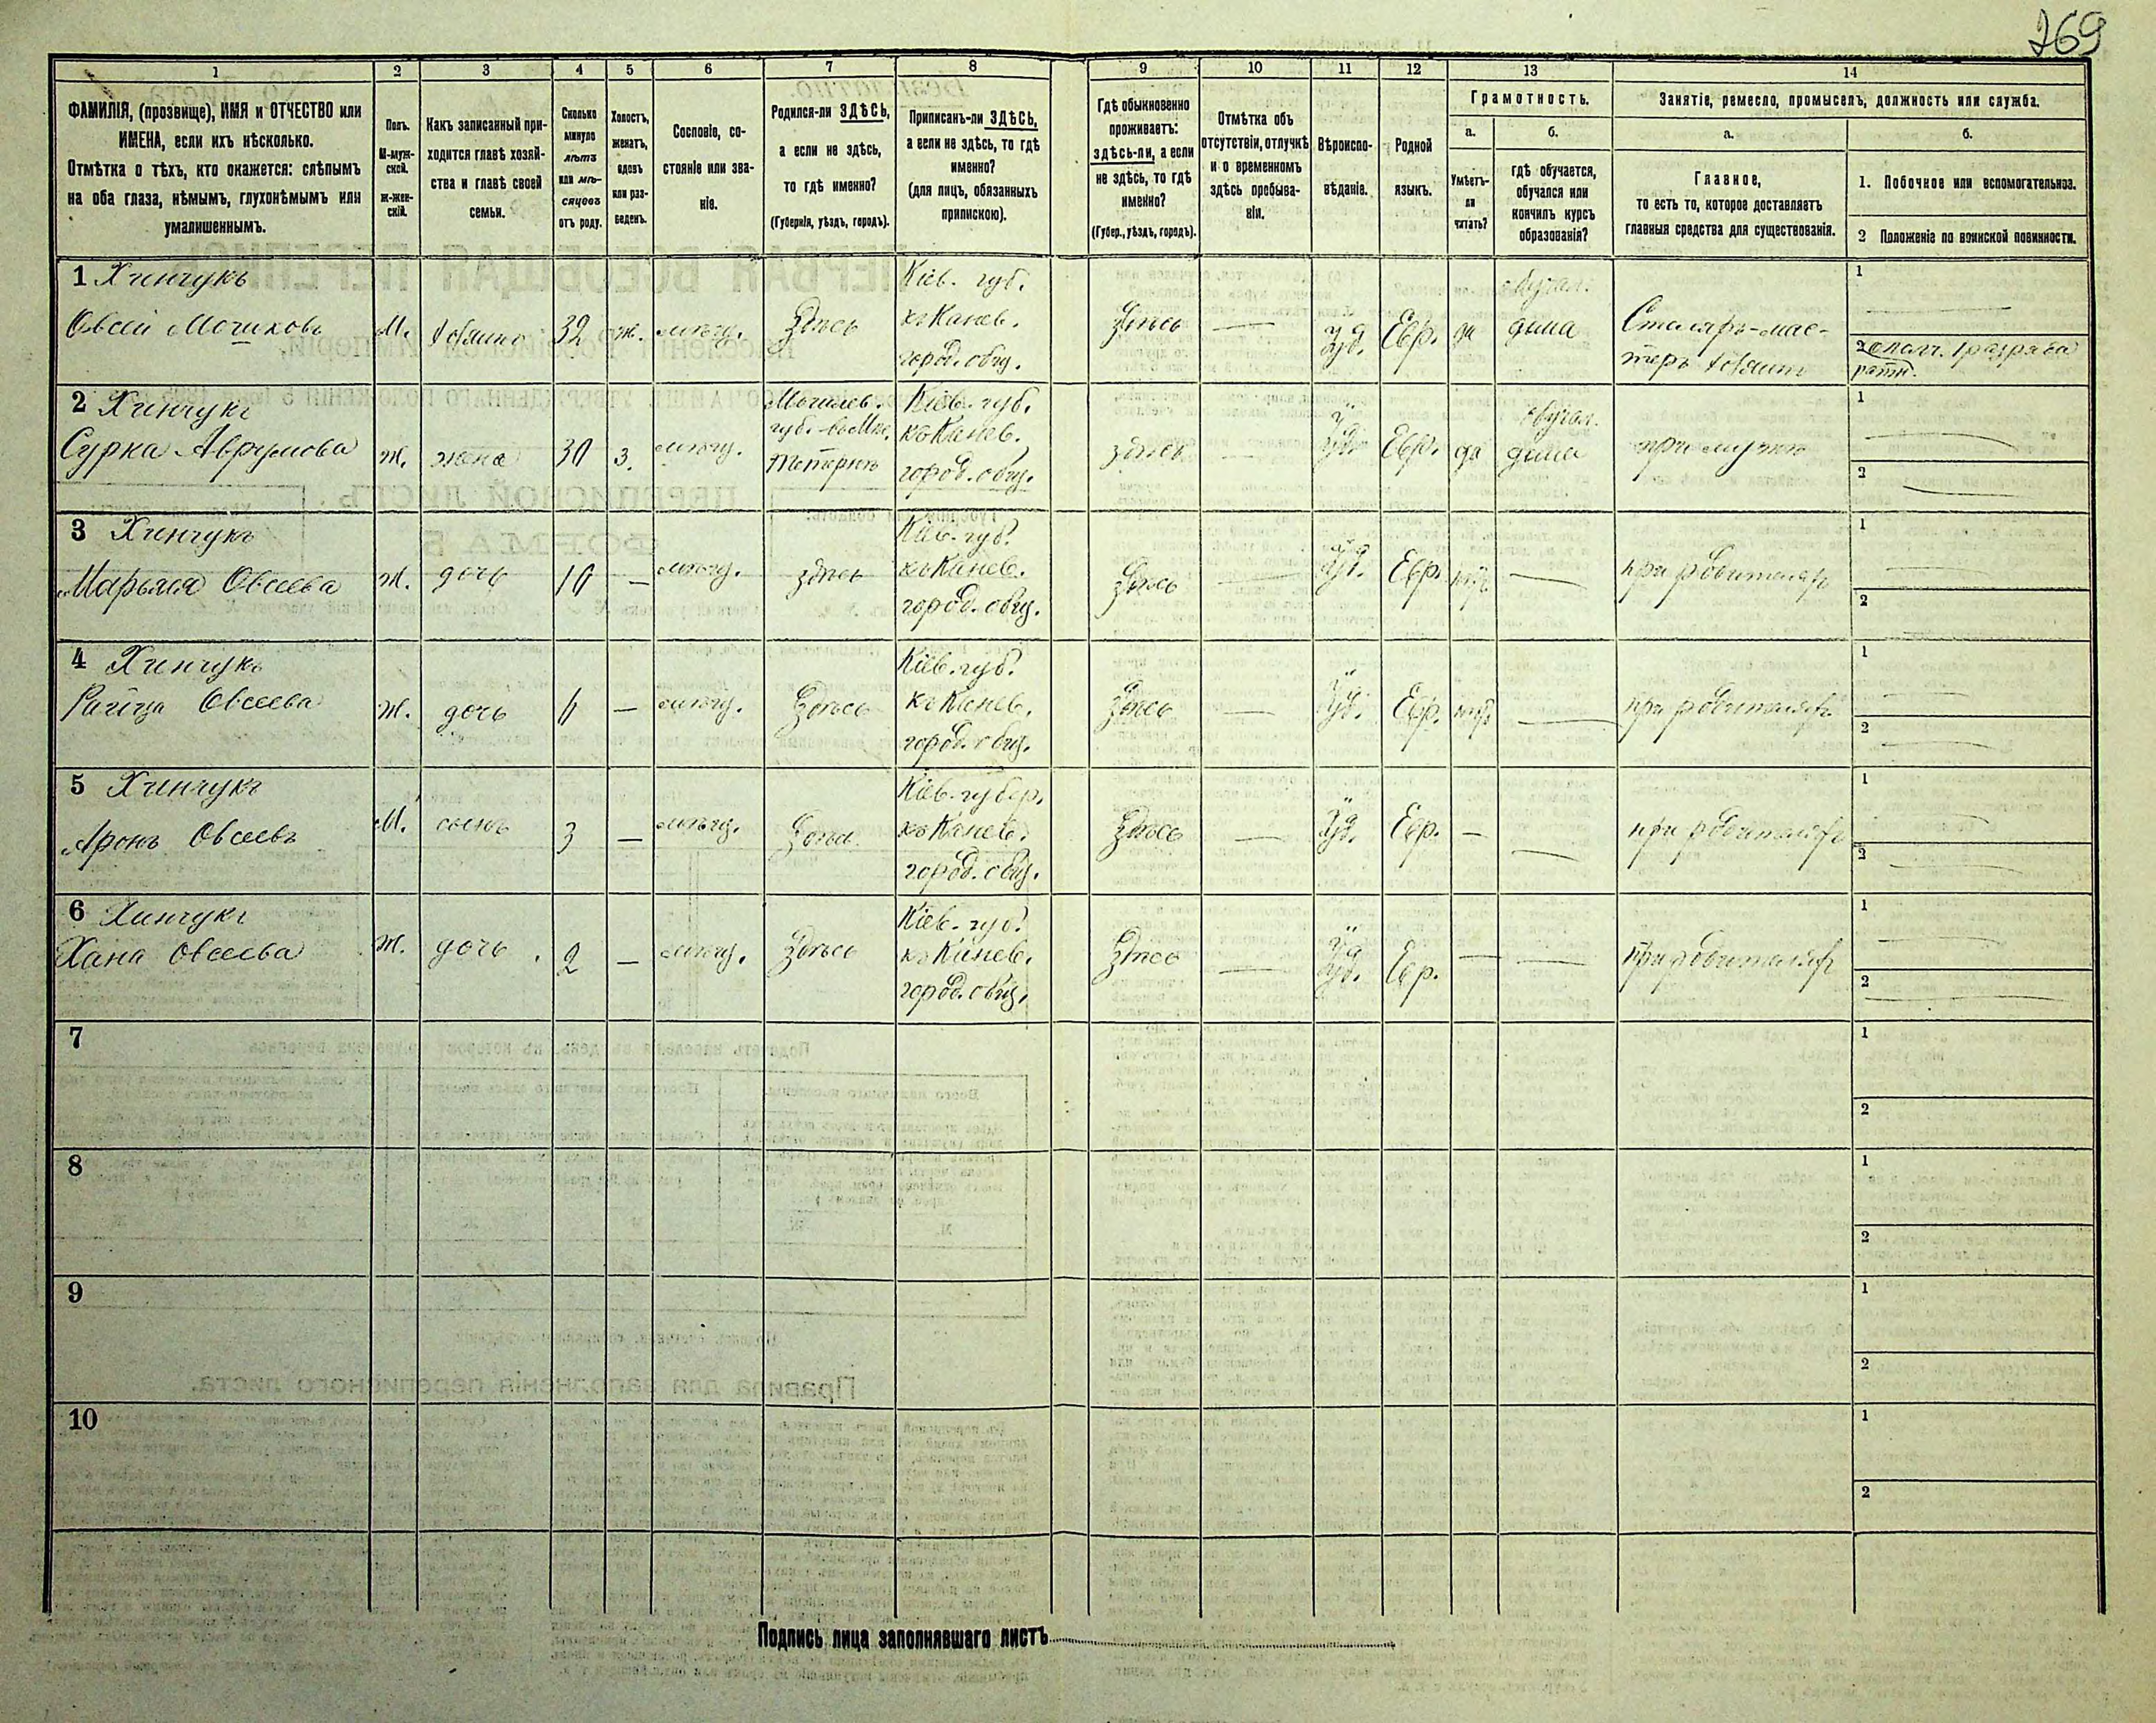 269
1
2
3
4
5
6
7
8
9
10
11
12
13
14
ФАМИЛІЯ, (прозвище), ИМЯ и ОТЧЕСТВО или
ИМЕНА, если ихъ нѣсколько.
Отмѣтка о тѣхъ, кто окажется: слѣпымъ
на оба глаза, нѣмымъ, глухонѣмымъ или
умалишеннымъ.
Полъ.
М-муж-
ской.
ж-жен-
скій.
Какъ записанный при-
ходится главѣ хозяй-
ства и главѣ своей
семьи.
Сколько
минуло
лѣтъ
или мѣ-
сяцевъ
отъ роду.
Холостъ,
женатъ,
вдовъ
или раз-
веденъ.
Сословіе, со-
стояніе или зва-
ніе.
Родился-ли ЗДѢСЬ,
а если не здѣсь,
то гдѣ именно?
(Губернія, уѣздъ, городъ).
Приписанъ-ли ЗДѢСЬ,
а если не здѣсь, то гдѣ
именно?
(для лицъ, обязанныхъ
припискою).
Гдѣ обыкновенно
проживаетъ:
здѣсь-ли, а если
не здѣсь, то гдѣ
именно?
(Губер., уѣздъ, городъ).
Отмѣтка объ
отсутствіи, отлучкѣ
и о временномъ
здѣсь пребыва-
ніи.
Вѣроиспо-
вѣданіе.
Родной
языкъ.
Грамотность.
а.
Умѣетъ-
ли
читать?
б.
гдѣ обучается,
обучался или
кончилъ курсъ
образованія?
Занятіе, ремесло, промыселъ, должность или служба.
а.
Главное,
то есть то, которое доставляетъ
главныя средства для существованія.
б.
1. Побочное или вспомогательное.
2 Положеніе по воинской повинности.
1 Хинчукъ
Овсей Мошковъ
М.
хозяинъ
32
ж.
мѣщ.
Здѣсь
Кіев. губ.
къ Канев.
город. общ.
Здѣсь
—
Іуд.
Евр.
да
обучал.
дома
Столяръ-мас-
теръ хозяинъ
1
—
2 ополч. 1 разряда
ратн.
2 Хинчукъ
Сурка Аврумова
ж.
жена
30
з.
мѣщ.
Могилев.
губ.
Кіев. губ.
къ Канев.
город. общ.
здѣсь
—
Іуд.
Евр.
да
обучал.
дома
при мужѣ
1
—
2
—
3 Хинчукъ
Марьяся Овсеева
ж.
дочь
10
—
мѣщ.
здѣсь
Кіев. губ.
къ Канев.
город. общ.
Здѣсь
—
Іуд.
Евр.
нѣтъ
—
при родителяхъ
1
—
2
4 Хинчукъ
Овсеева
ж.
дочь
6
—
мѣщ.
Здѣсь
Кіев. губ.
къ Канев.
город. общ.
Здѣсь
—
Іуд.
Евр.
нѣтъ
—
при родителяхъ
1
—
2
—
5 Хинчукъ
Аронъ Овсеевъ
М.
сынъ
3
—
мѣщ.
Здѣсь
Кіев. губер.
къ Канев.
город. общ.
Здѣсь
—
Іуд.
Евр.
—
—
при родителяхъ
1
—
2
—
6 Хинчукъ
Хана Овсеева
ж.
дочь
2
—
мѣщ.
Здѣсь
Кіев. губ.
къ Канев.
город. общ.
Здѣсь
—
Іуд.
Евр.
—
—
при родителяхъ
1
—
2
—
7
1
2
8
1
2
9
1
2
10
1
2
Подпись лица заполнявшаго листъ